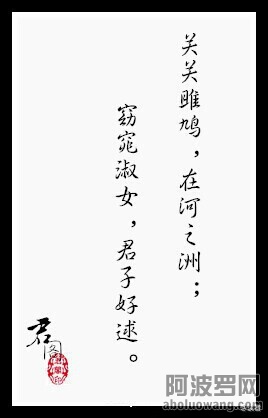 关关雎鸠，在河之洲；
窈窕淑女，君子好逑。
君
阿波罗网
aboluowang.com